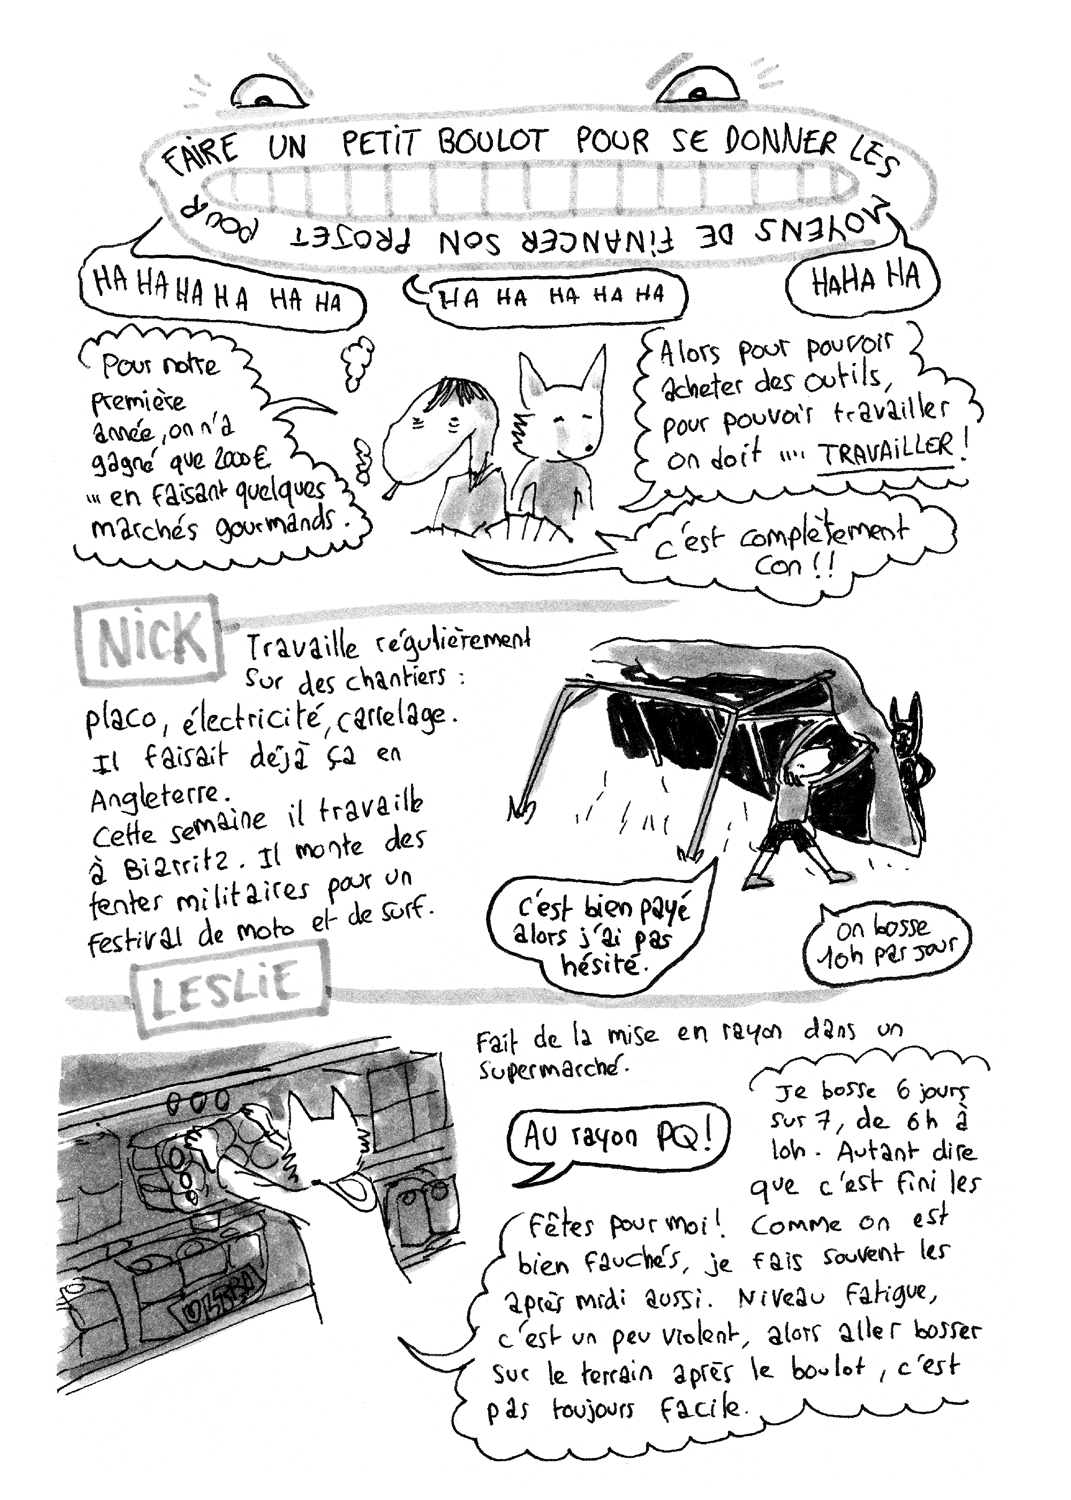 FAIRE UN PETIT BOULOT POUR SE DONNER LES
MOYENS DE FINANCER SON PROJET POUR
HA HA HA HA HA HA
HA HA HA HA HA
HAHA HA
Pour notre
première
année, on n'a
gagné que 2000€
... en faisant quelques
marchés gourmands.
Alors pour pouvoir
acheter des outils,
pour pouvoir travailler
on doit .... TRAVAILLER !
c'est complètement
con !!
NICK
Travaille régulièrement
sur des chantiers :
placo, électricité, carrelage.
Il faisait déjà ça en
Angleterre.
Cette semaine il travaille
à Biarritz. Il monte des
tentes militaires pour un
festival de moto et de surf.
c'est bien payé
alors j'ai pas
hésité.
on bosse
10h par jour
LESLIE
Fait de la mise en rayon dans un
supermarché.
Au rayon PQ !
Je bosse 6 jours
sur 7, de 6h à
10h. Autant dire
que c'est fini les
fêtes pour moi ! Comme on est
bien fauchés, je fais souvent les
après midi aussi. Niveau fatigue,
c'est un peu violent, alors aller bosser
sur le terrain après le boulot, c'est
pas toujours facile.